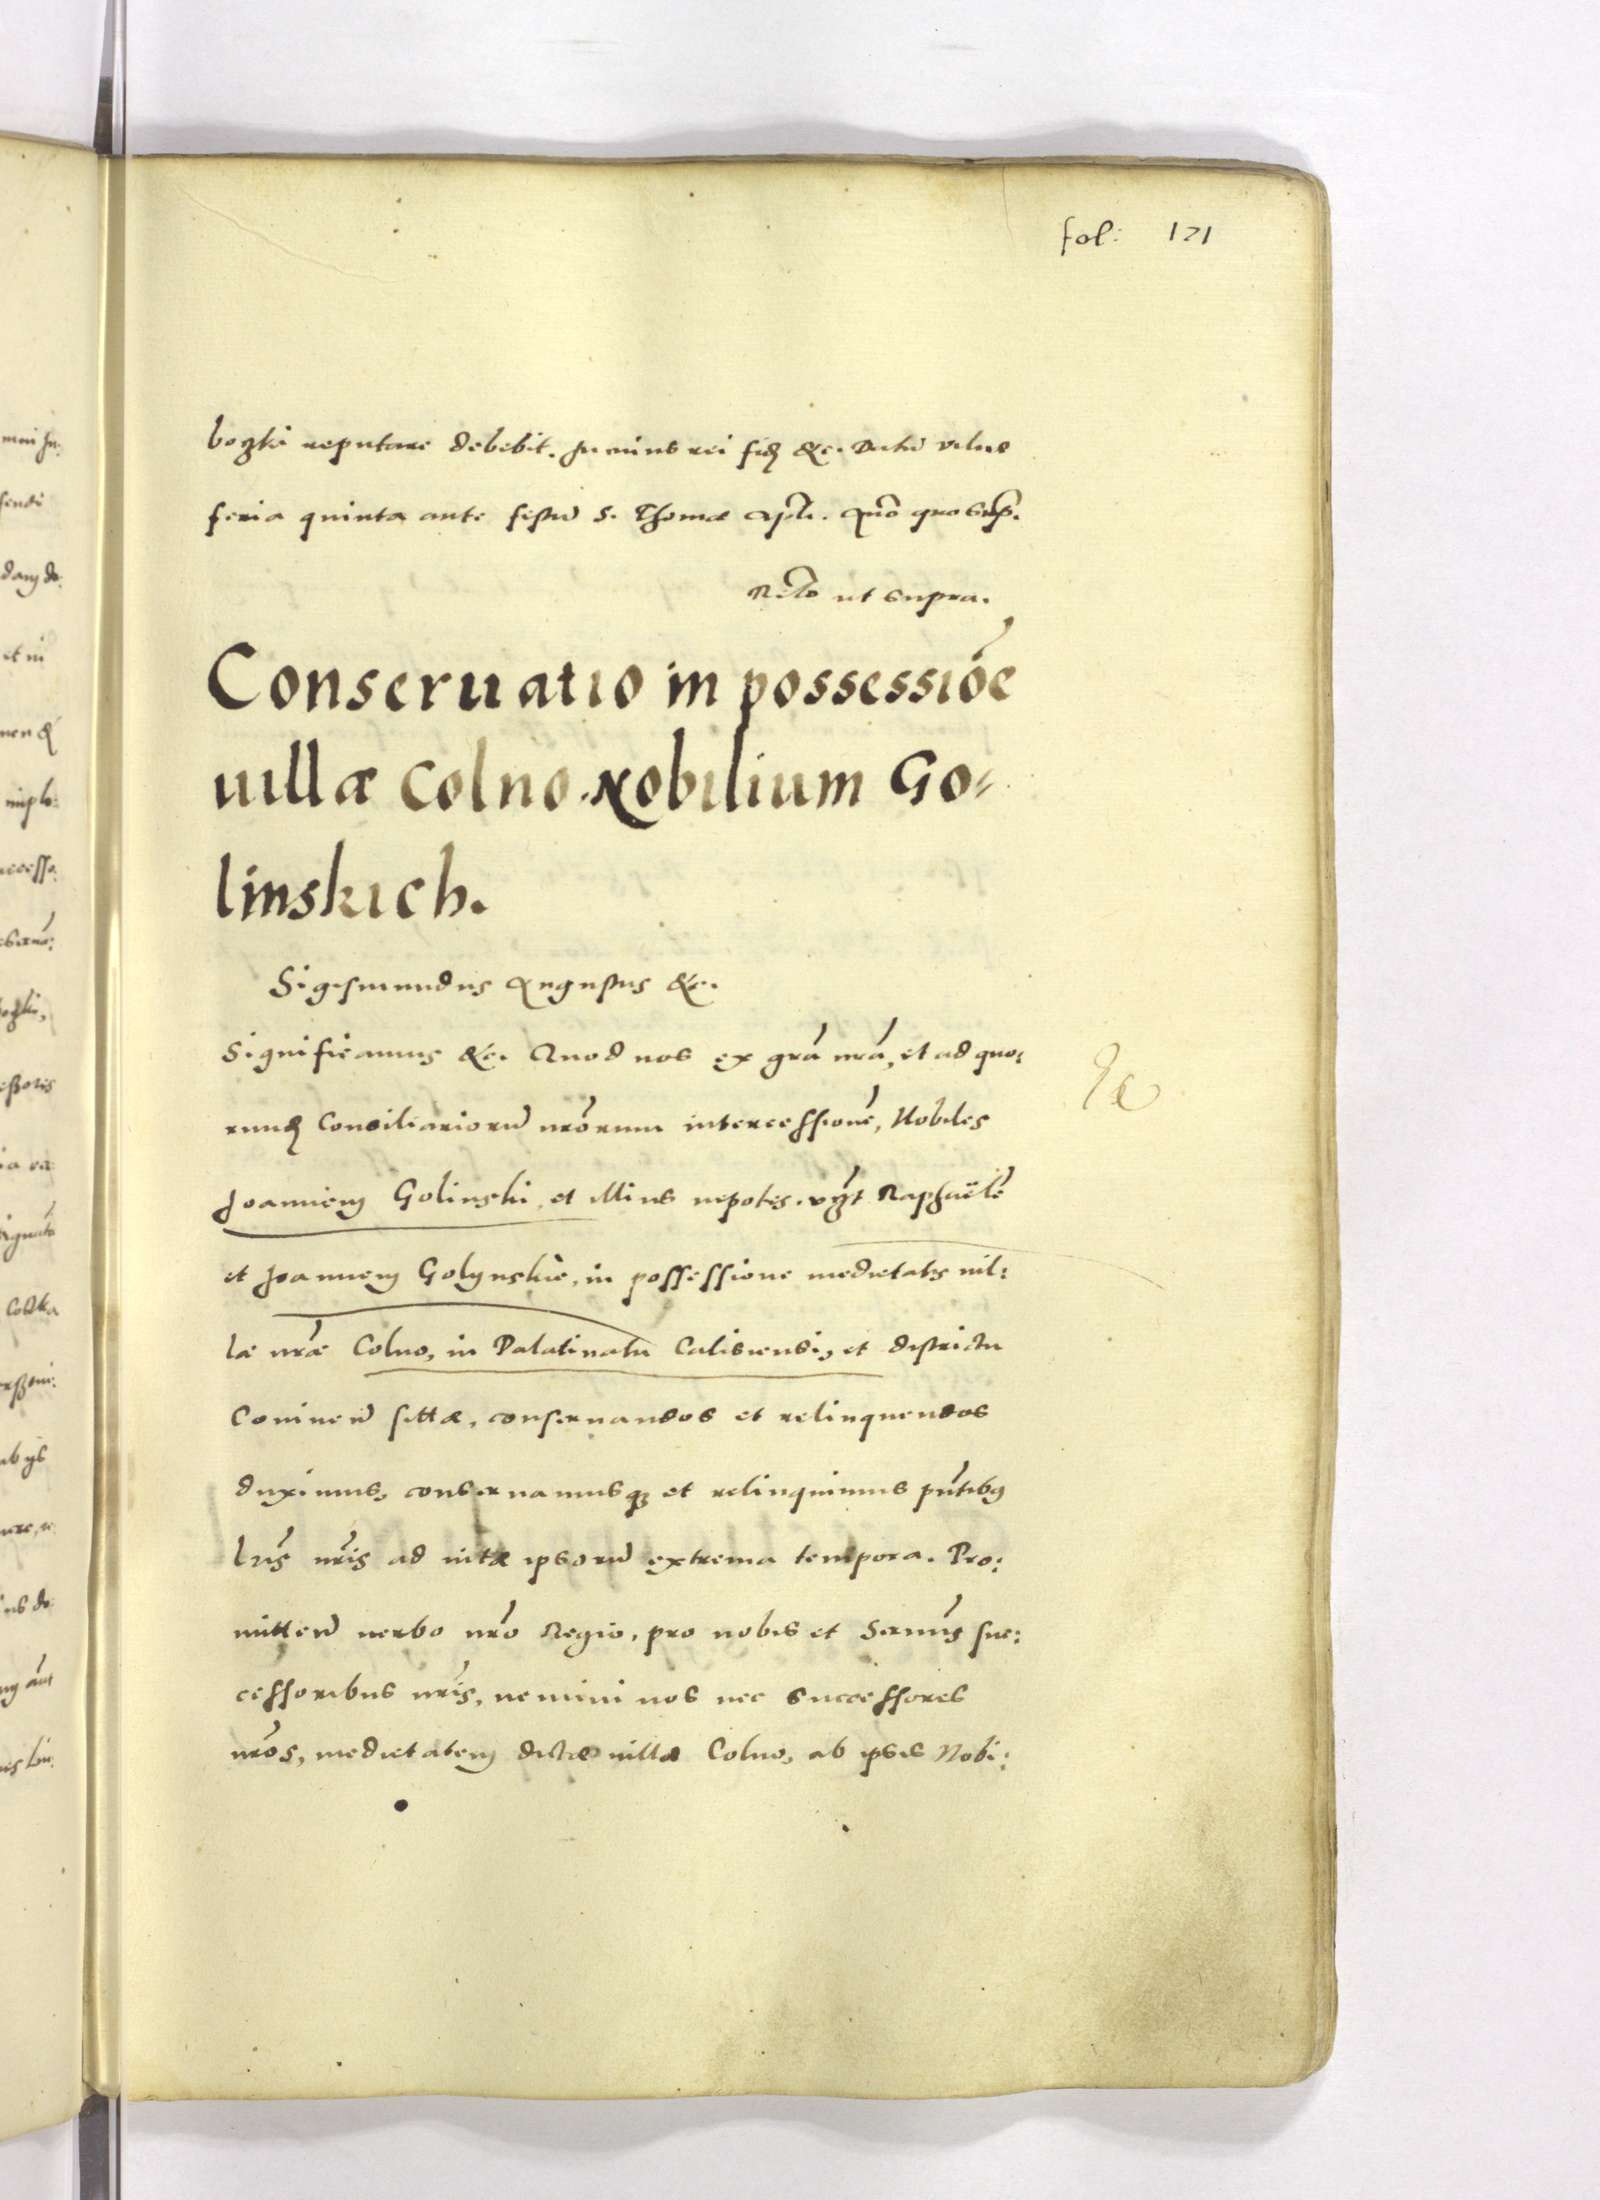 fol: 121
bozki reputare debebit. In cuius rei fid &c. Datũ Vilnę
feria quinta ante festũ S. Thomæ Apli. Año quo sup̃.
Rel̃o ut supra.
Conseruatio in possessiõe
uillæ Colno. Nobilium Go=
linskich.
Sigismundus Augustus &c.
Significamus &c. Quod nos ex grã nrã, et ad quo:
rund Consiliariorũ nrõrum intercessionẽ, Nobiles
Joannem Golinski, et illius nepotes. vzt Raphaëlẽ
et Joannem Golynskie, in possessione medietatis uil:
læ nrãe Colno, in Palatinatu Calisiensi, et districtu
Coninen̄ sittæ, conseruandos et relinquendos
duximus, conseruamusq3 et relinquimus pñtibg
lrĩs nrĩs ad uitæ ipsorũ extrema tempora. Pro:
mitten̄ uerbo nrõ Regio, pro nobis et Sermĩs suc:
cessoribus nrĩs, nemini nos nec successores
nrõs, medietatem dictæ uillæ Colno, ab ipsis Nobi: